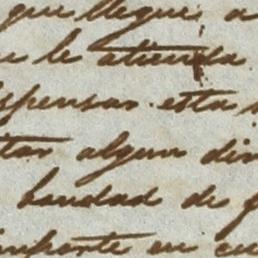 que llegue a
e le atienda
spensar esta
tar algun din
bandad de
importe en cu